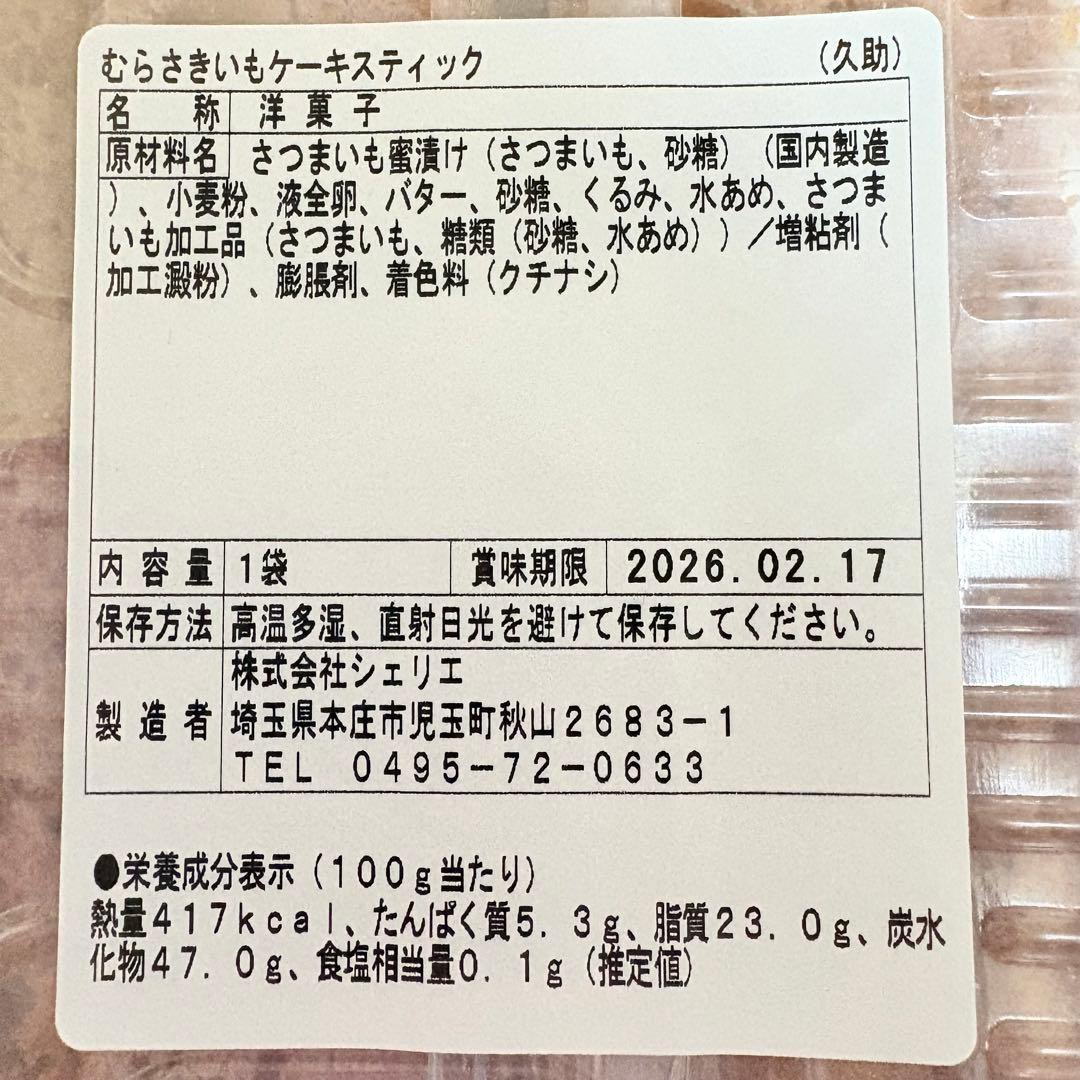 むらさきいもケーキスティック （久助）
名称 洋菓子
原材料名 さつまいも蜜漬け（さつまいも、砂糖）（国内製造
）、小麦粉、液全卵、バター、砂糖、くるみ、水あめ、さつま
いも加工品（さつまいも、糖類（砂糖、水あめ））／増粘剤（
加工澱粉）、膨脹剤、着色料（クチナシ）
内容量 1袋 賞味期限 2026.02.17
保存方法 高温多湿、直射日光を避けて保存してください。
株式会社シェリエ
製造者 埼玉県本庄市児玉町秋山２６８３－１
ＴＥＬ ０４９５－７２－０６３３
●栄養成分表示（１００ｇ当たり）
熱量４１７ｋｃａｌ、たんぱく質５．３ｇ、脂質２３．０ｇ、炭水
化物４７．０ｇ、食塩相当量０．１ｇ（推定値）